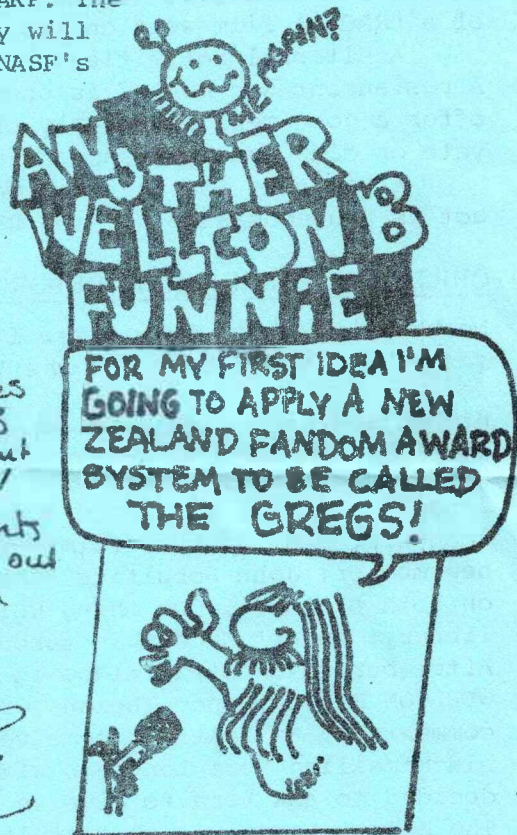 ARP. The
y will
NASF's
ME AGAIN?
ANOTHER
WELLCON B
FUNNIE
FOR MY FIRST IDEA I'M
GOING TO APPLY A NEW
ZEALAND FANDOM AWARD
SYSTEM TO BE CALLED
THE GREGS!
out